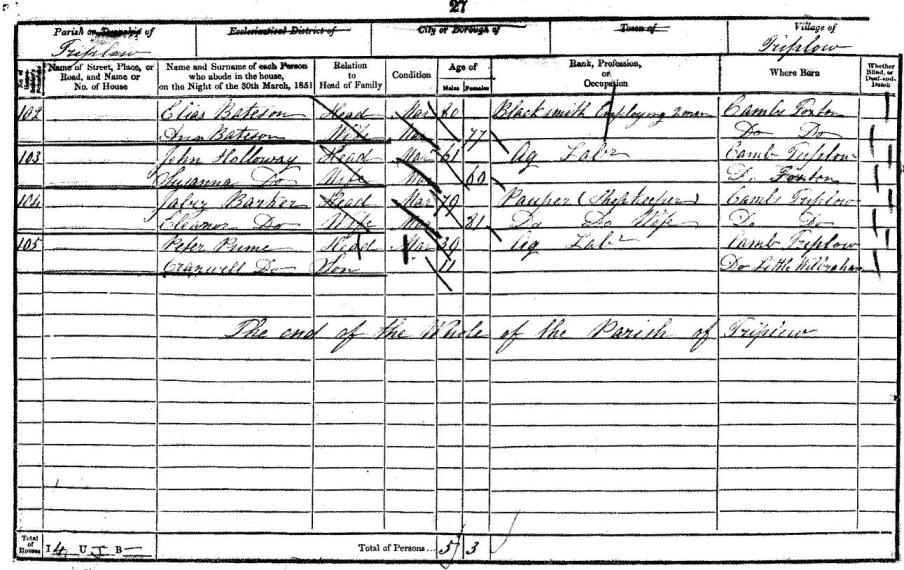 27
Parish or Township of Ecclesiastical District of City or Borough of Town of Village of
Triplow Triplow
Name of Street, Place, or Road, and Name or No. of House Name and Surname of each Person who abode in the house, on the Night of the 30th March, 1851 Relation to Head of Family Condition Age of Males Females Rank, Profession, or Occupation Where Born Whether Blind, or Deaf-and-Dumb
102 Elias Bateson Head Mar 80 Blacksmith Employing 2 men Cambs Foxton
Ann Bateson Wife Mar 77 Do Do
103 John Holloway Head Mar 61 Ag Labr Camb Triplow
Susanna Do Wife Mar 60 Do Foxton
104 Head Mar 79 Pauper (Shopkeeper) Cambs Triplow
Eleanor Do Wife Mar 81 Do Do Wife Do Do
105 Peter Head Mar Ag Labr Camb Triplow
Do Son 11 Do Little Wilbraham
The end of the Whole of the Parish of Triplow
Total of Houses I 4 U I B — Total of Persons ... 5 3